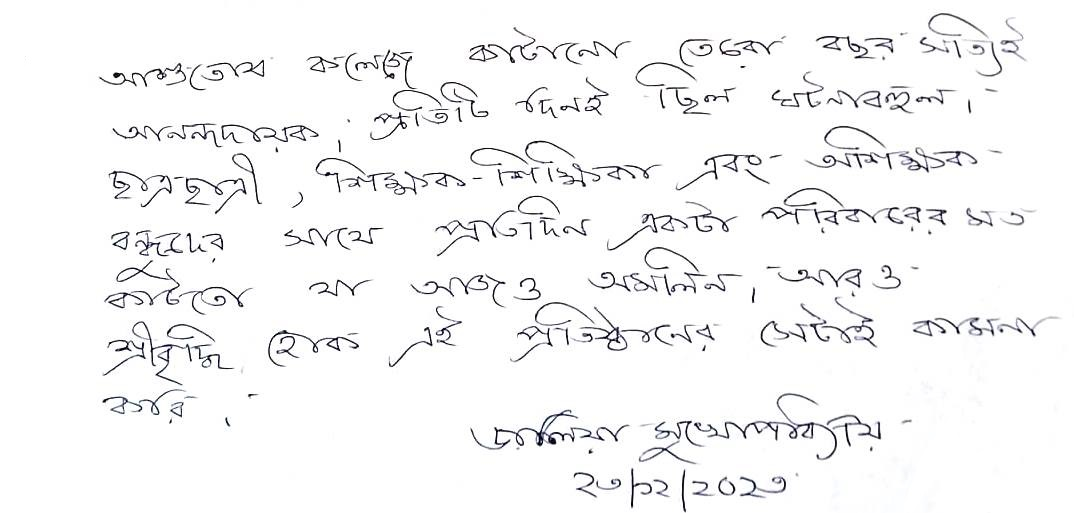 আশুতোষ কলেজে কাটানো তেরো বছর সত্যিই
আনন্দদায়ক, প্রতিটি দিনই ছিল ঘটনাবহুল।
ছাত্রছাত্রী, শিক্ষক-শিক্ষিকা এবং অশিক্ষক
বন্ধুদের সাথে প্রতিদিন একটা পরিবারের মত
কাটতো যা আজও অমলিন, আরও
শ্রীবৃদ্ধি হোক এই প্রতিষ্ঠানের সেটাই কামনা
করি।
মুখোপাধ্যায়
২৩/১২/২০২৩